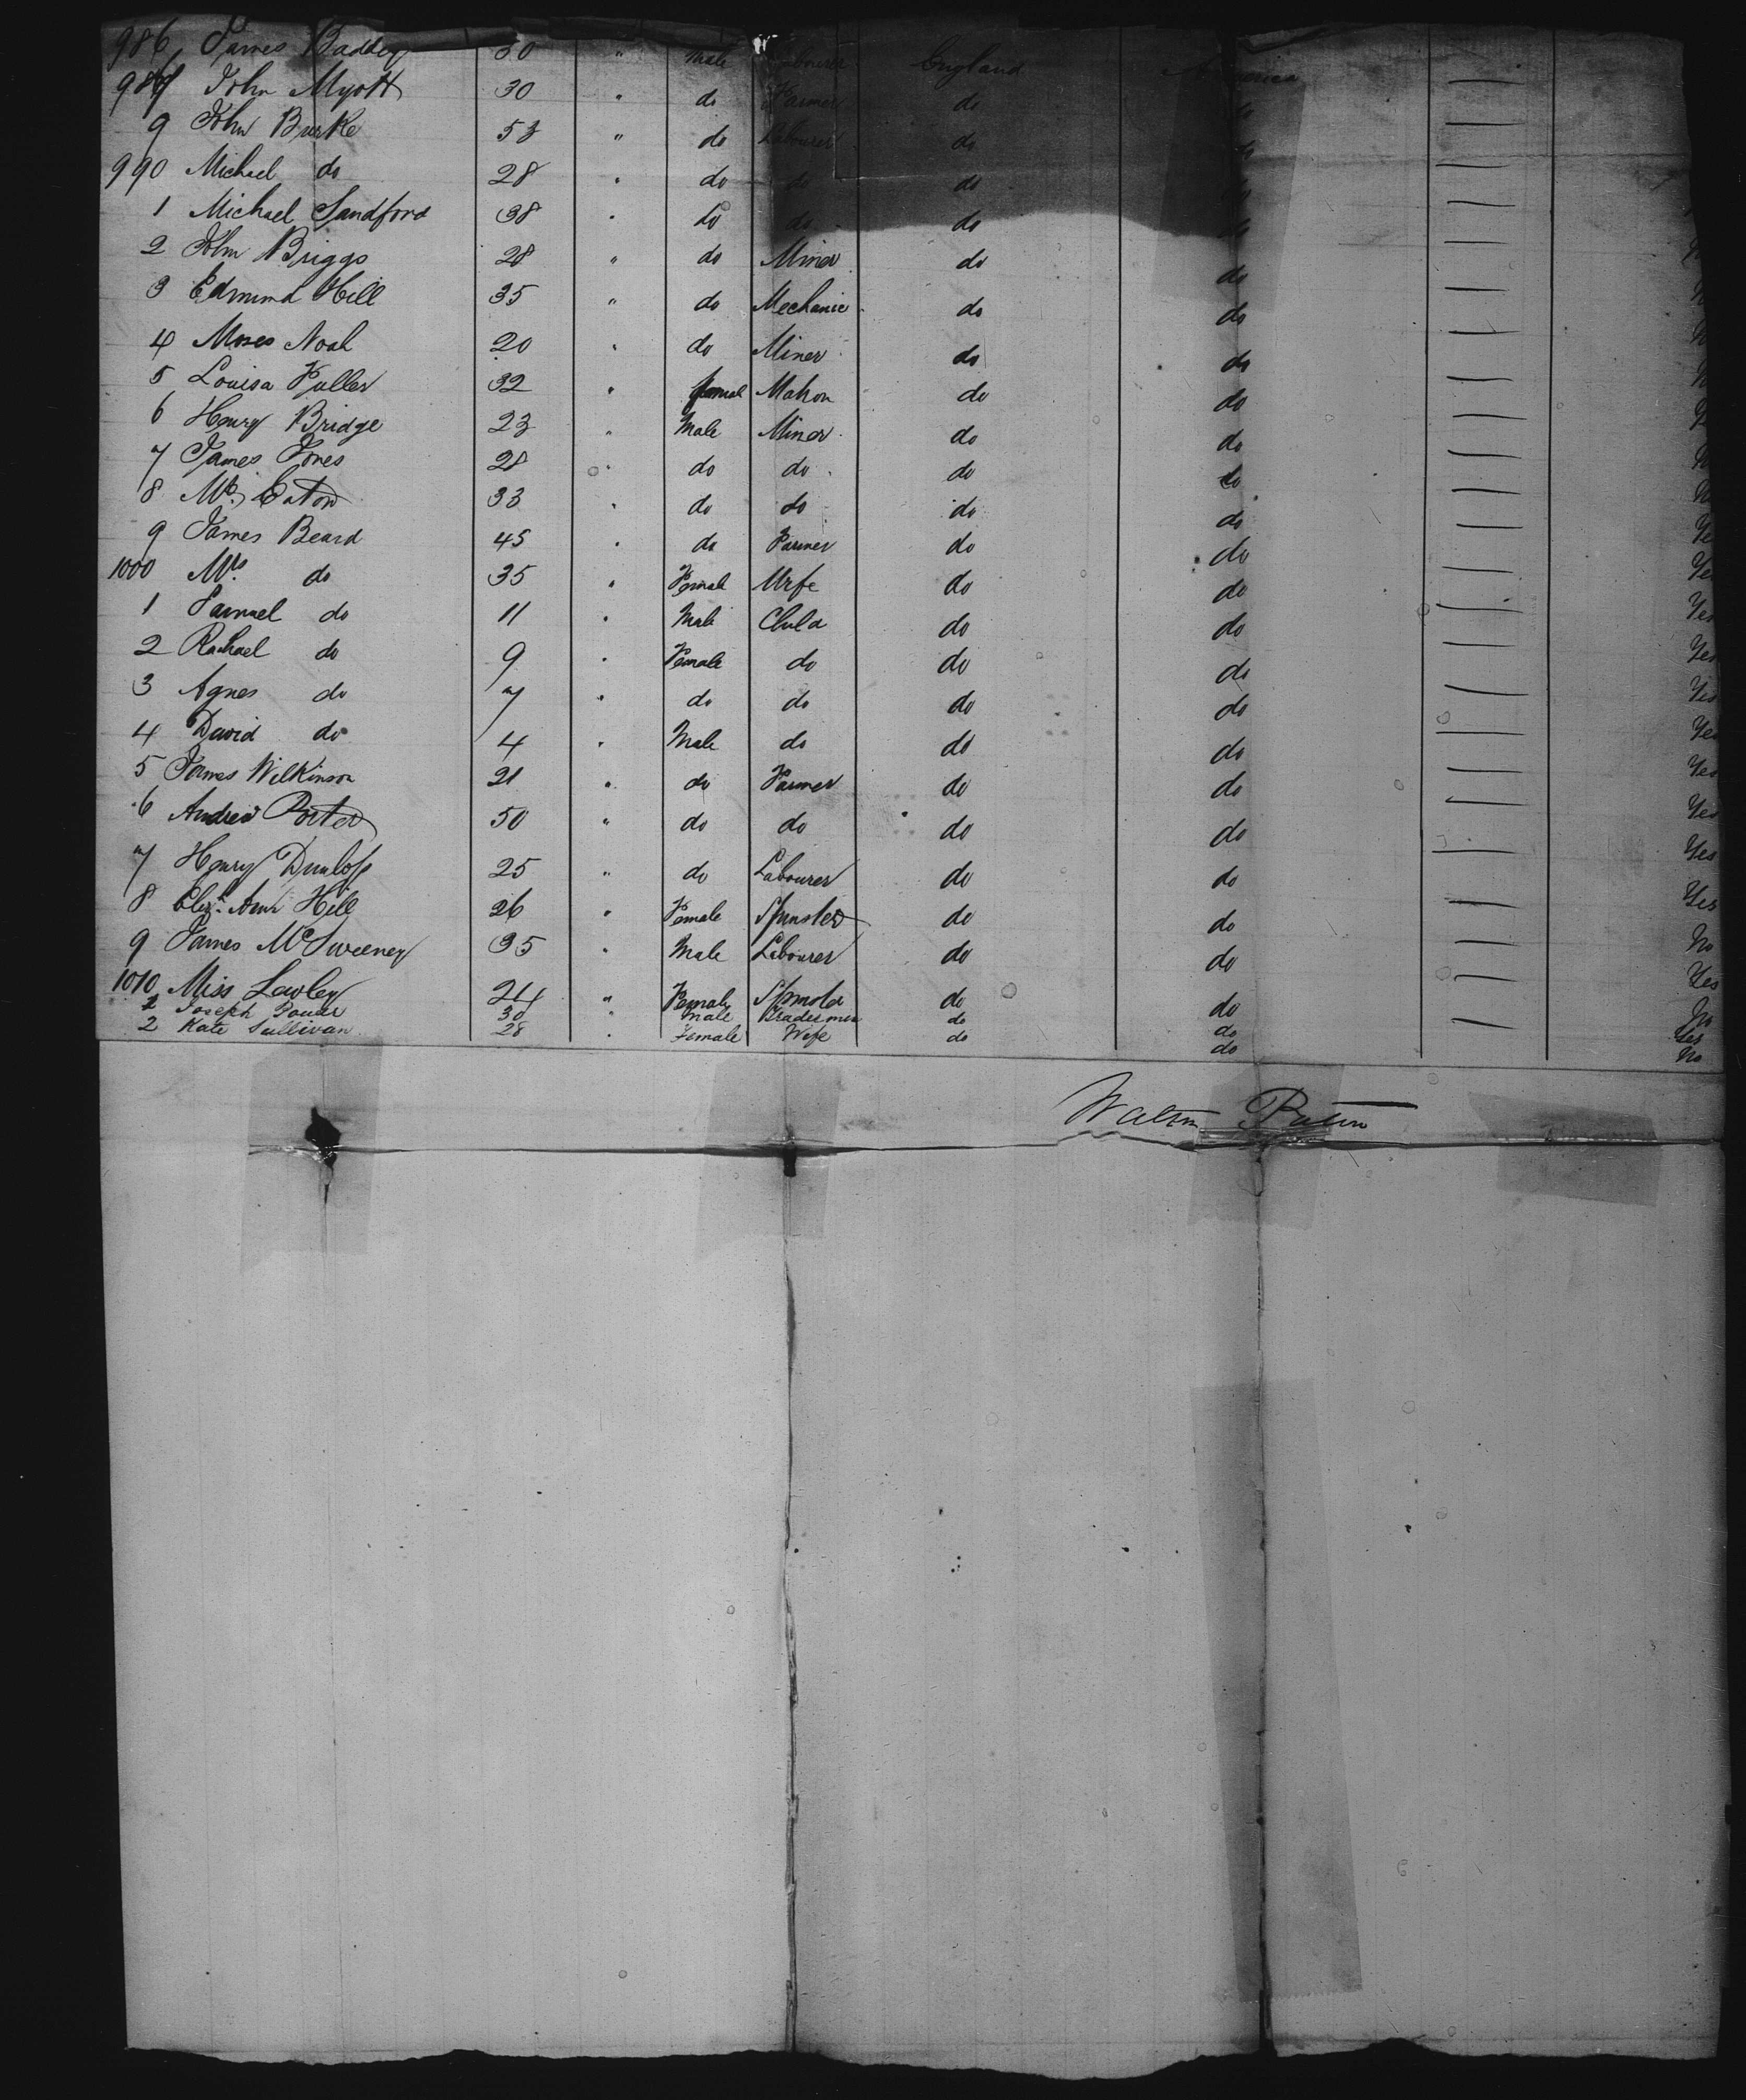 986 James Baddey 30 " Male Labourer England America —
989 John Myott 30 " do Farmer do do —
9 John Burke 53 " do Labourer do do —
990 Michael do 28 " do do do —
1 Michael Sandford 38 " do do do do —
2 John Briggs 28 " do Miner do do —
3 Edmund Hill 35 " do Mechanic do do —
4 Moses Noah 20 " do Miner do do —
5 Louisa Fuller 32 " female do do —
6 Henry Bridge 23 " Male Miner do do —
7 James Jones 28 " do do do do —
8 Mr. Eaton 33 " do do do do —
9 James Beard 45 " do Farmer do do — Ye
1000 Mrs do 35 " Female Wife do do — Yes
1 Samuel do 11 " Male Child do do — Yes
2 Rachael do 9 " Female do do do — Yes
3 Agnes do 7 " do do do do — Yes
4 David do 4 " Male do do do — Yes
5 James Wilkinson 21 " do Farmer do do — Yes
6 Andrew Porter 50 " do do do do — Yes
7 Henry Dunlop 25 " do Labourer do do — Yes
8 Eliz. Ann Hill 26 " Female Spinster do do — Yes
9 James McSweeney 35 " Male Labourer do do — No
1010 Miss Lawley 24 " Female do do — Yes
Joseph Power 30 " Male do do No
2 Kate Sullivan 28 " Female Wife do do No